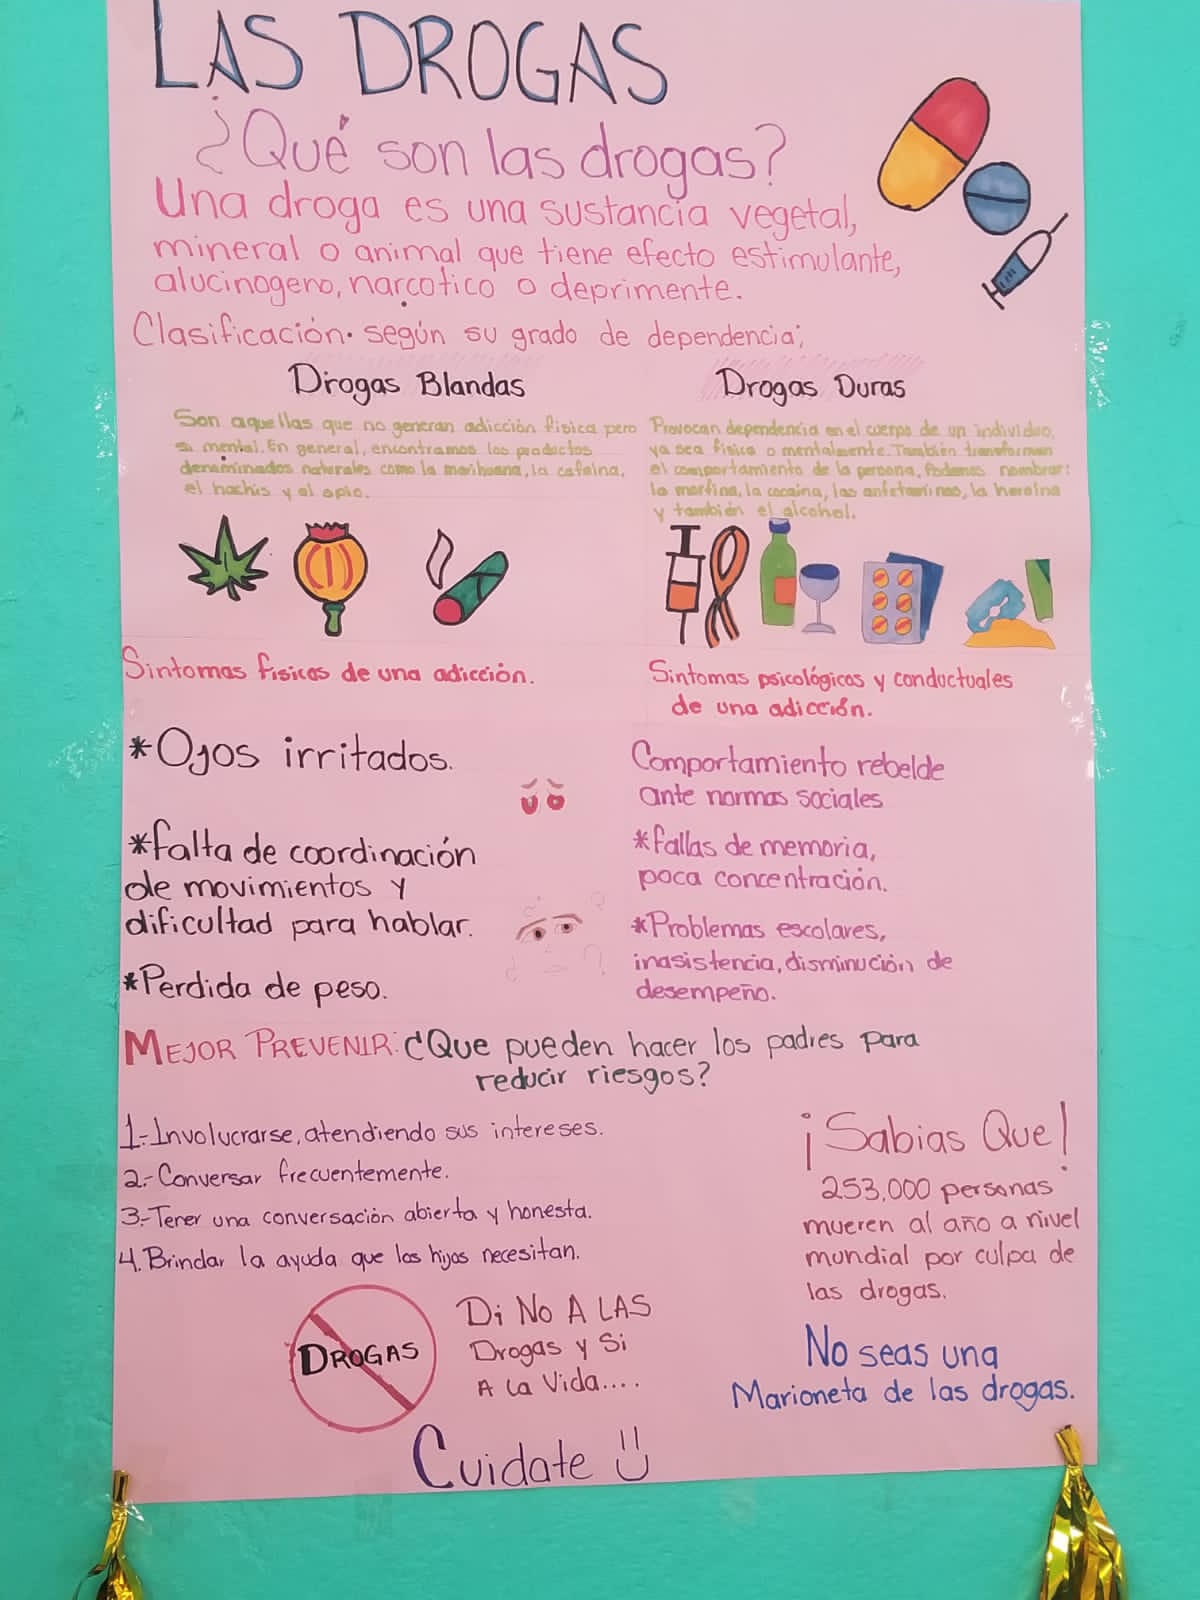 LAS DROGAS
¿Qué son las drogas?
Una droga es una sustancia vegetal,
mineral o animal que tiene efecto estimulante,
alucinogeno, narcotico o deprimente.
Clasificación. según su grado de dependencia;
Drogas Blandas
Son aquellas que no generan adicción fisica pero
si mental. En general, encontramos los productos
denominados naturales como la marihuana, la cafeina,
el hachis y el opio.
Drogas Duras
Provocan dependencia en el cuerpo de un individuo,
ya sea fisica o mentalmente. También transforman
el comportamiento de la persona, Podemos nombrar:
la morfina, la cocaina, las anfetaminas, la heroina
y también el alcohol.
Sintomas fisicos de una adicción.
*Ojos irritados.
*falta de coordinación
de movimientos y
dificultad para hablar.
*Perdida de peso.
Sintomas psicológicos y conductuales
de una adicción.
Comportamiento rebelde
ante normas sociales
*fallas de memoria,
poca concentración.
*Problemas escolares,
inasistencia, disminución de
desempeño.
MEJOR PREVENIR: ¿Que pueden hacer los padres para
reducir riesgos?
1.-Involucrarse, atendiendo sus intereses.
2.-Conversar frecuentemente.
3.-Tener una conversación abierta y honesta.
4.Brindar la ayuda que los hijos necesitan.
¡Sabias Que!
253,000 personas
mueren al año a nivel
mundial por culpa de
las drogas.
DROGAS
Di NO A LAS
Drogas y Si
A la Vida....
No seas una
Marioneta de las drogas.
Cuidate